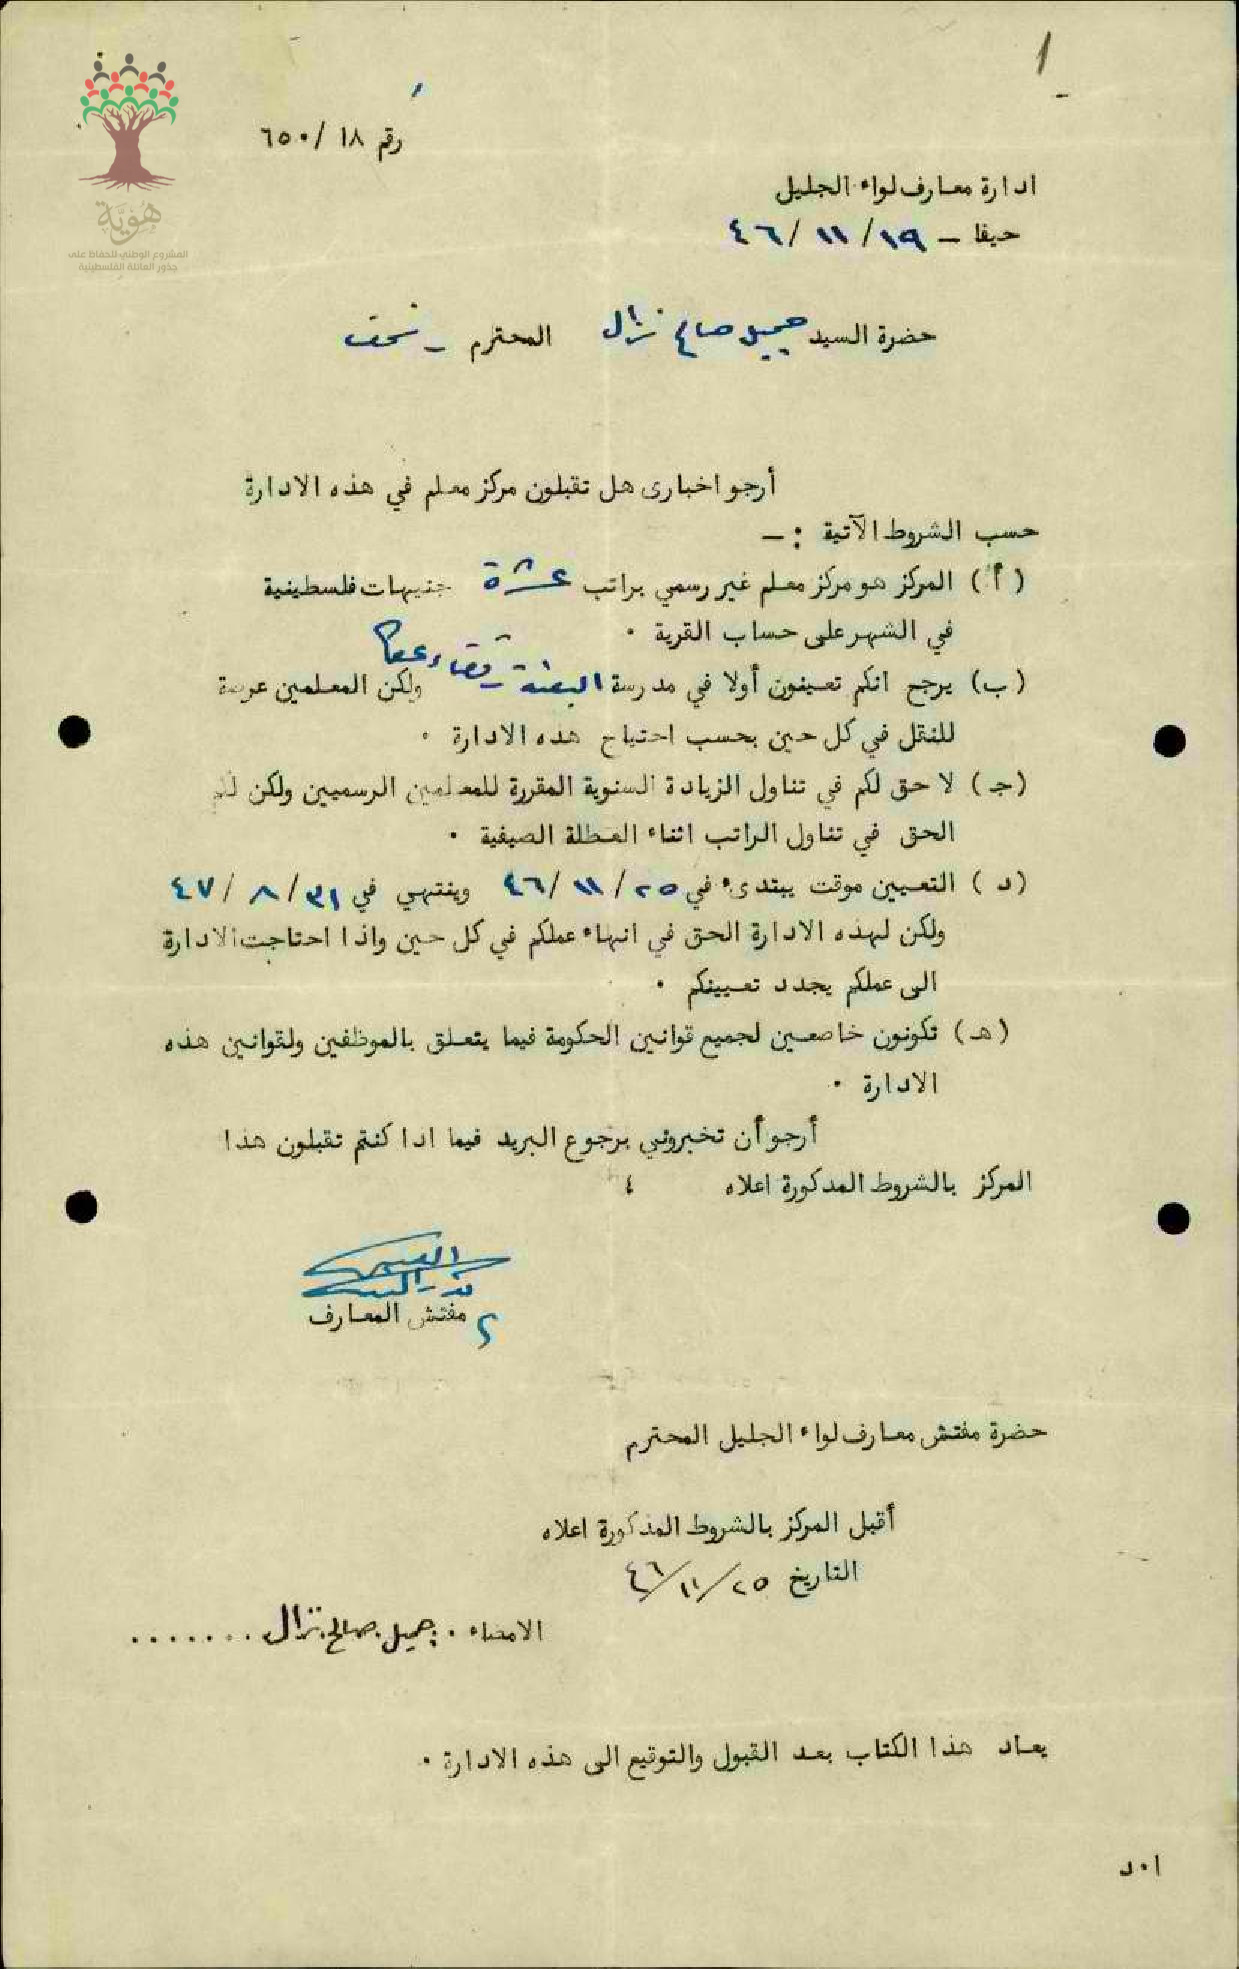 ١
هُويَّة
المشروع الوطني للحفاظ على
جذور العائلة الفلسطينية
رقم ١٨ /٦٥٠
ادارة معارف لواء الجليل
حيفا – ١٩/ ١١/ ٤٦
حضرة السيد جميل صالح نزال المحترم – نحف
أرجو اخبارى هل تقبلون مركز معلم في هذه الادارة
حسب الشروط الآتية :–
(أ) المركز هو مركز معلم غير رسمي براتب عشرة جنيهات فلسطينية
في الشهر على حساب القرية .
(ب) يرجح انكم تعينون أولا في مدرسة البعنة – قضاء عكا ولكن المعلمين عرضة
للنقل في كل حين بحسب احتياج هذه الادارة .
(جـ) لا حق لكم في تناول الزيادة السنوية المقررة للمعلمين الرسميين ولكن لكم
الحق في تناول الراتب اثناء العطلة الصيفية .
(د) التعيين موقت يبتدىء في ٢٥/ ١١/ ٤٦ وينتهي في ٣١/ ٨/ ٤٧
ولكن لهذه الادارة الحق في انهاء عملكم في كل حين واذا احتاجت الادارة
الى عملكم يجدد تعيينكم .
(هـ) تكونون خاضعين لجميع قوانين الحكومة فيما يتعلق بالموظفين ولقوانين هذه
الادارة .
أرجو أن تخبروني برجوع البريد فيما اذا كنتم تقبلون هذا
المركز بالشروط المذكورة اعلاه ٤
مفتش المعارف
حضرة مفتش معارف لواء الجليل المحترم
أقبل المركز بالشروط المذكورة اعلاه
التاريخ ٢٥/ ١١/ ٤٦
الامضاء . جميل صالح نزال.......
يعاد هذا الكتاب بعد القبول والتوقيع الى هذه الادارة .
ا٠د